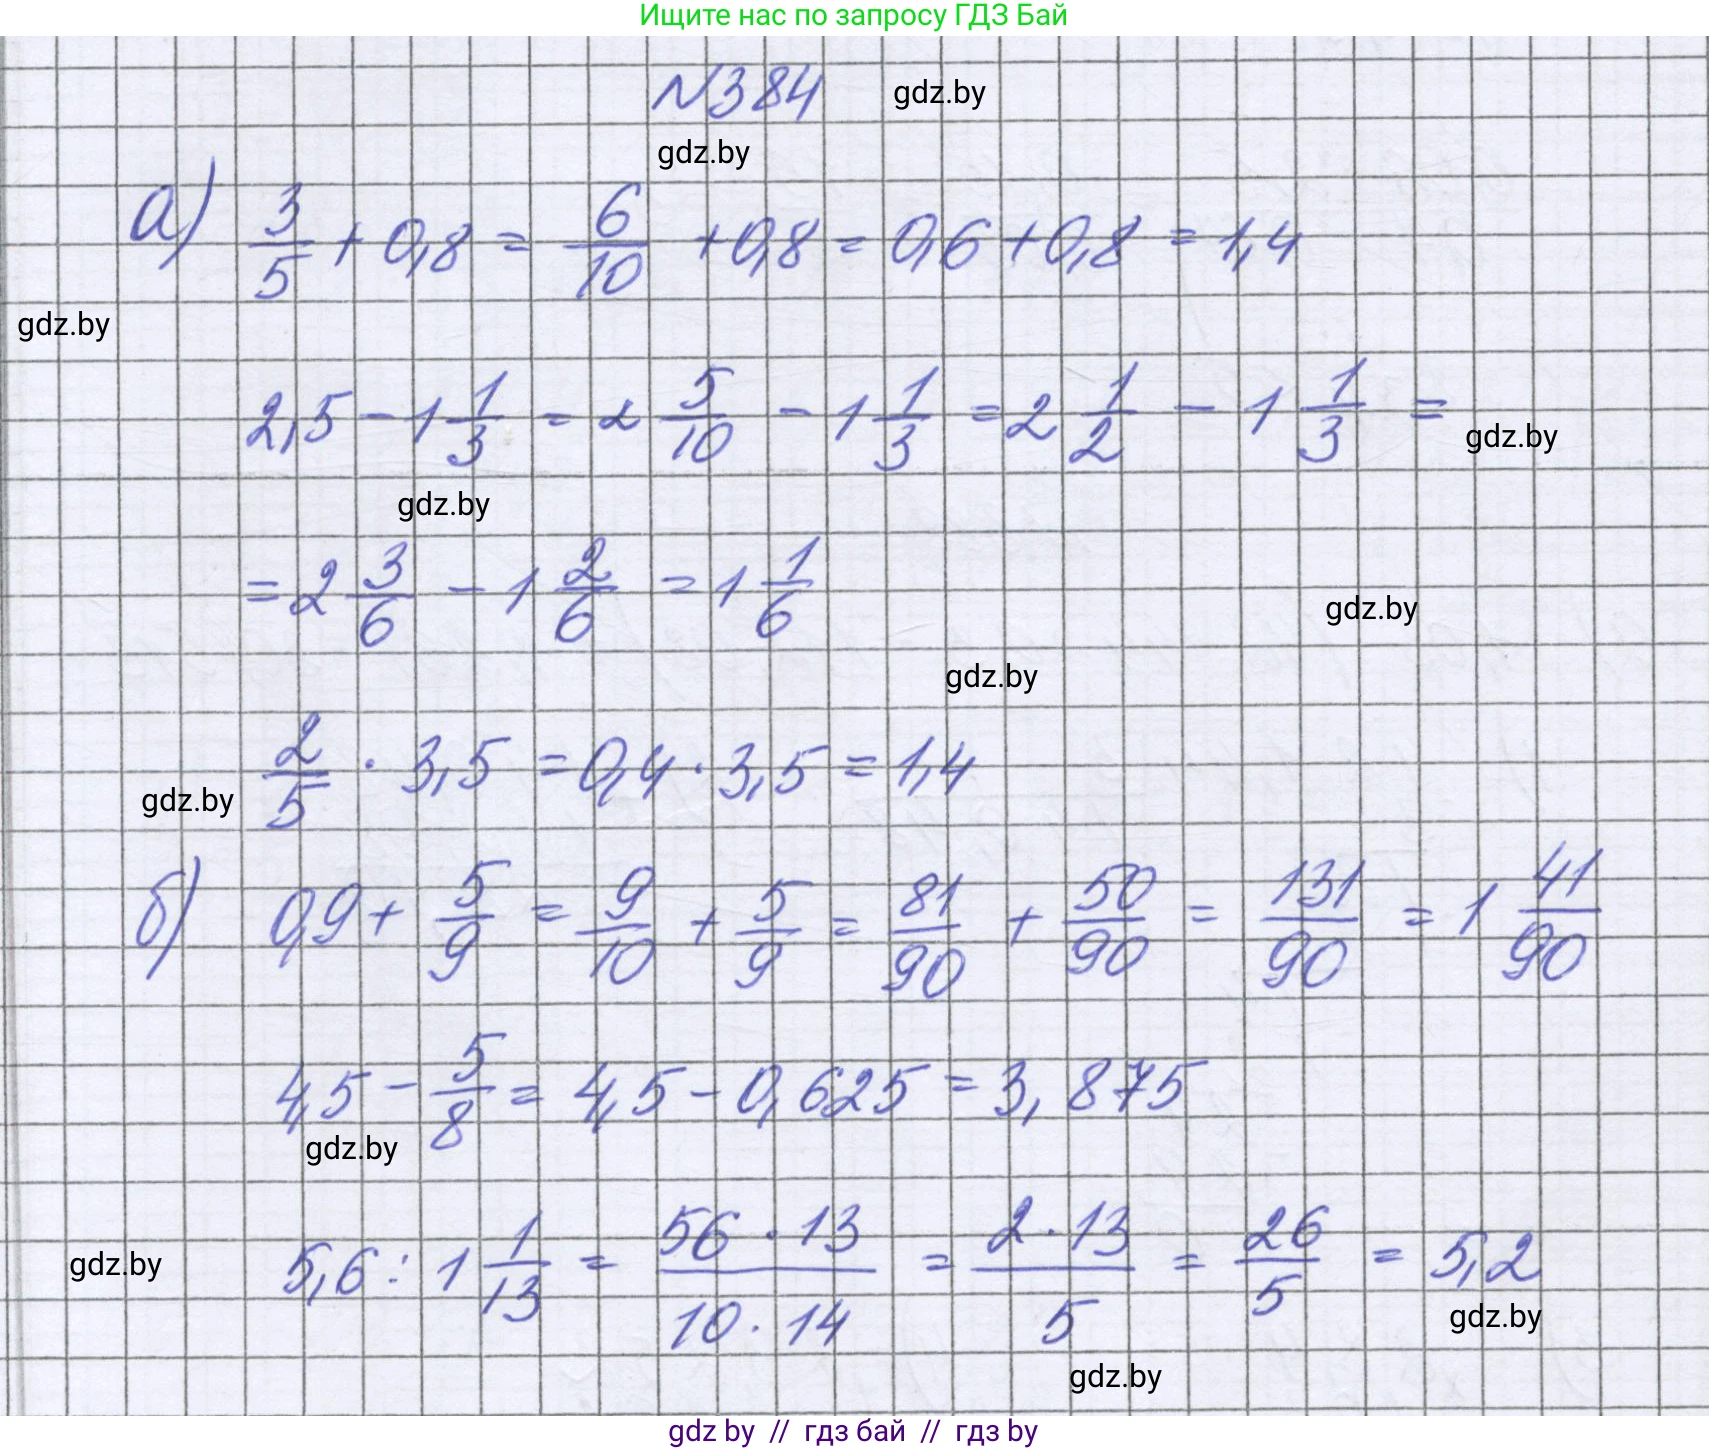 Ищите нас по запросу ГДЗ Бай
N384 gdz.by
gdz.by
а) 3/5 + 0,8 = 6/10 + 0,8 = 0,6 + 0,8 = 1,4
gdz.by
2,5 - 1 1/3 = 2 5/10 - 1 1/3 = 2 1/2 - 1 1/3 =
gdz.by
gdz.by
= 2 3/6 - 1 2/6 = 1 1/6
gdz.by
gdz.by
2/5 · 3,5 = 0,4 · 3,5 = 1,4
gdz.by
б) 0,9 + 5/9 = 9/10 + 5/9 = 81/90 + 50/90 = 131/90 = 1 41/90
4,5 - 5/8 = 4,5 - 0,625 = 3,875
gdz.by
gdz.by
5,6 : 1 1/13 = 56 · 13/10 · 14 = 2 · 13/5 = 26/5 = 5,2
gdz.by
gdz.by
gdz by // гдз бай // гдз by